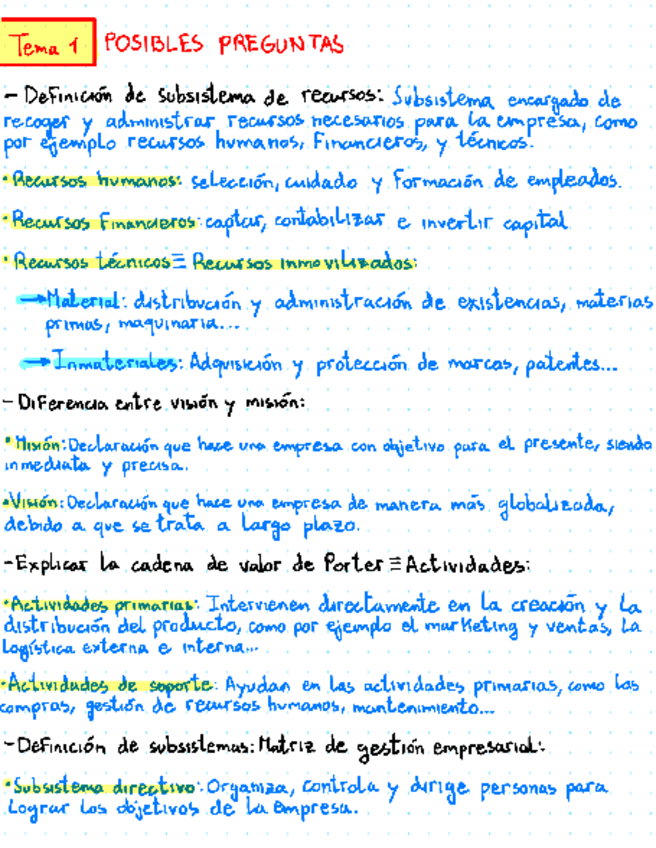 Tema 1 POSIBLES PREGUNTAS
- Definición de subsistema de recursos: Subsistema encargado de
recoger y administrar recursos necesarios para la empresa, como
por ejemplo recursos humanos, Financieros, y técnicos.
• Recursos humanos: selección, cuidado y Formación de empleados.
• Recursos Financieros: captar, contabilizar e invertir capital
• Recursos técnicos ≡ Recursos inmovilizados:
→ Material: distribución y administración de existencias, materias
primas, maquinaria...
→ Inmateriales: Adquisición y protección de marcas, patentes...
- Diferencia entre visión y misión:
• Misión: Declaración que hace una empresa con objetivo para el presente, siendo
inmediata y precisa.
• Visión: Declaración que hace una empresa de manera más globalizada,
debido a que se trata a largo plazo.
- Explicar la cadena de valor de Porter ≡ Actividades:
• Actividades primarias: Intervienen directamente en la creación y la
distribución del producto, como por ejemplo el marketing y ventas, la
logística externa e interna...
• Actividades de soporte: Ayudan en las actividades primarias, como las
compras, gestión de recursos humanos, mantenimiento...
- Definición de subsistemas: Matriz de gestión empresarial:
• Subsistema directivo: Organiza, controla y dirige personas para
lograr los objetivos de la empresa.